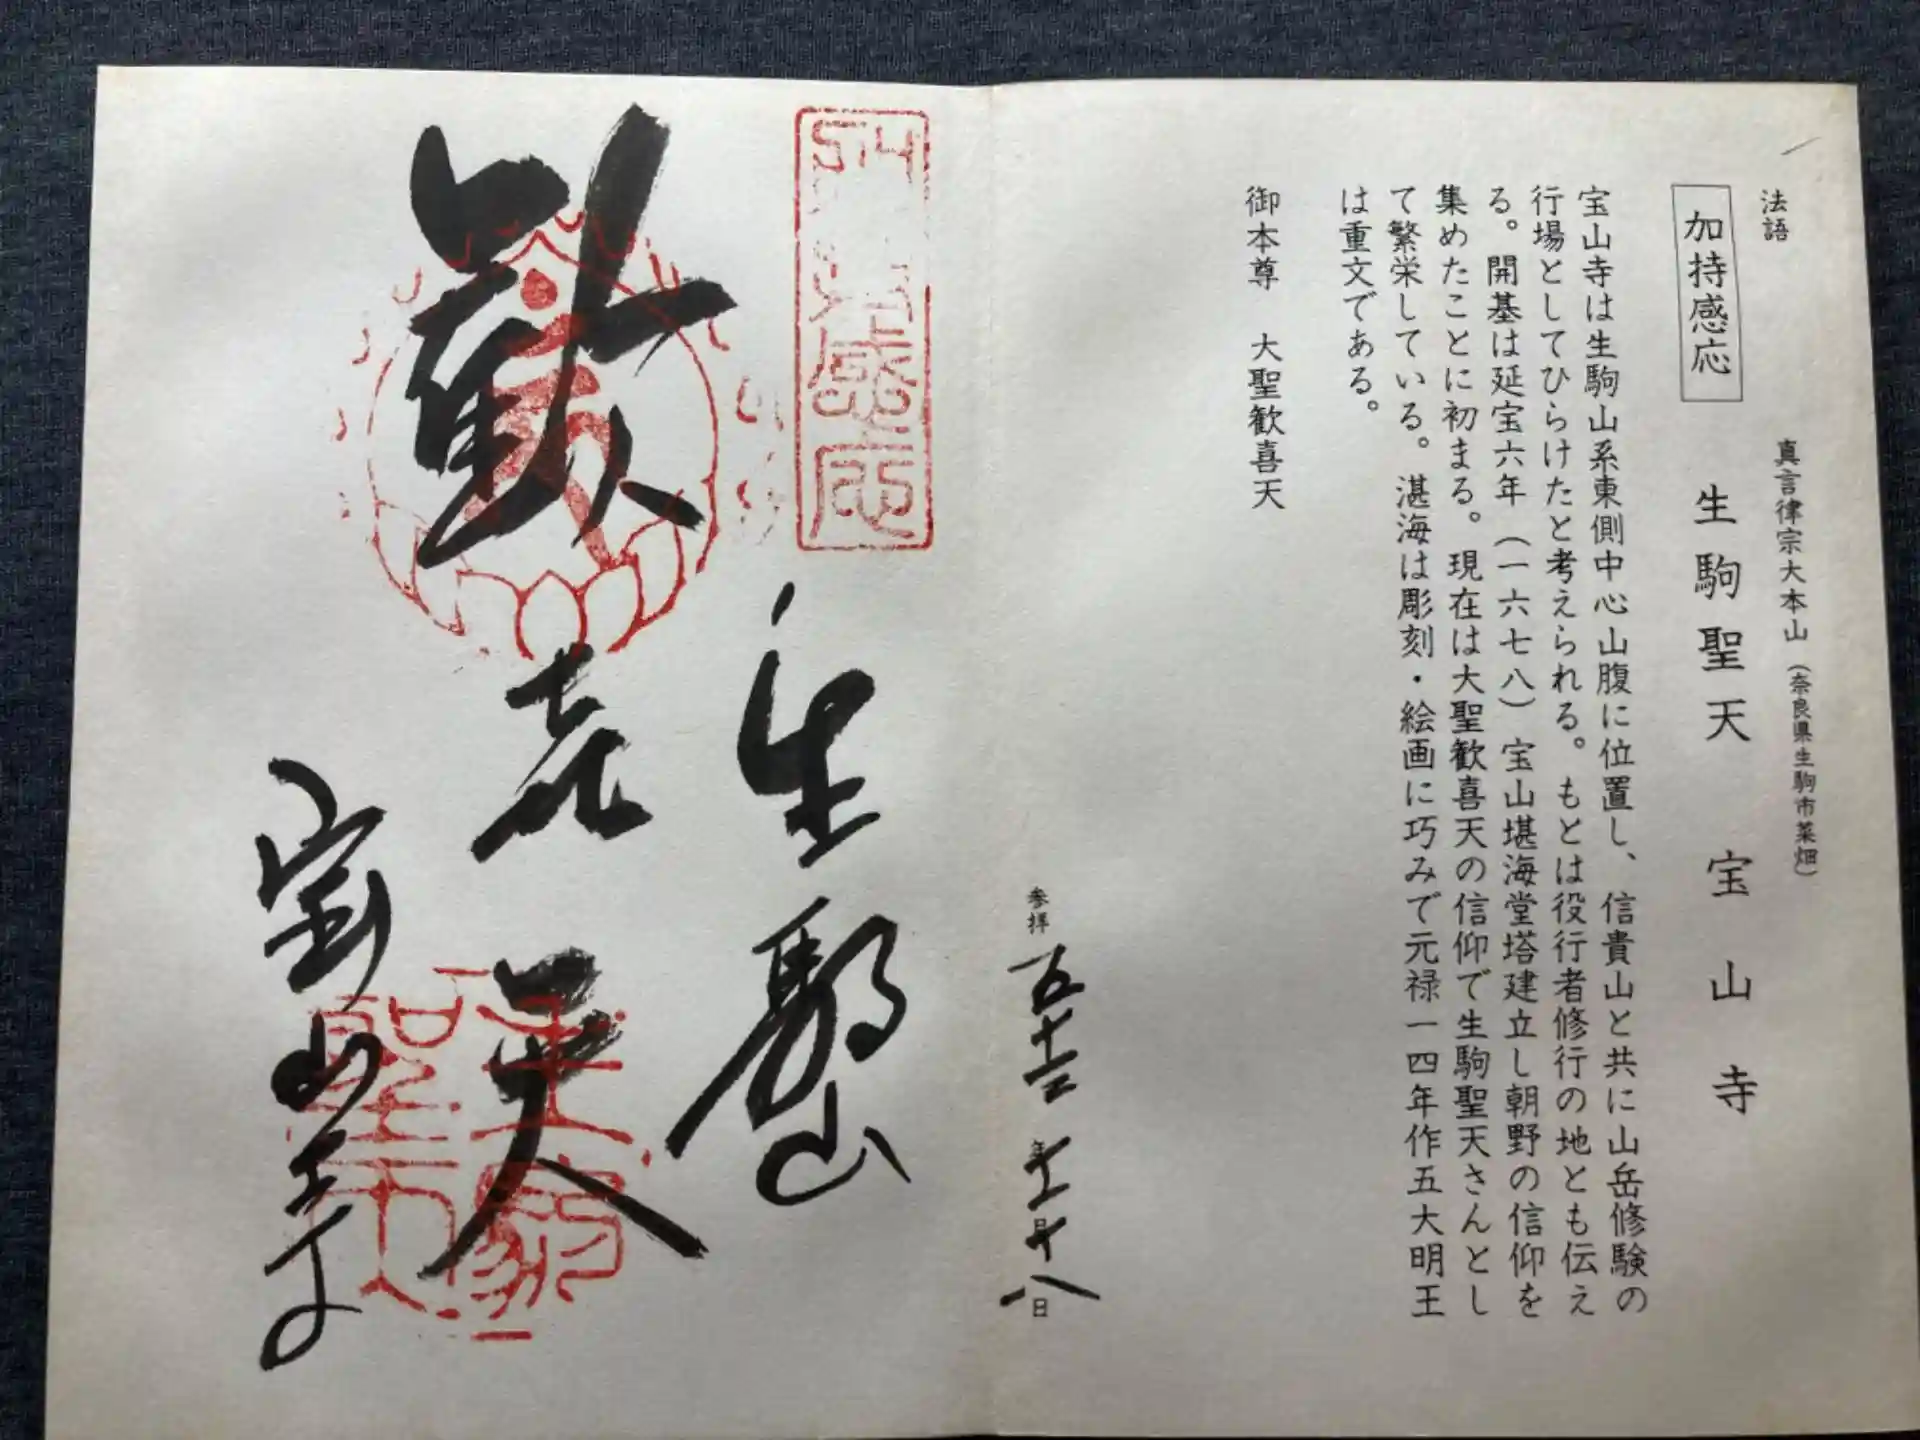 法語
加持感応
真言律宗大本山（奈良県生駒市菜畑）
生駒聖天 宝山寺
宝山寺は生駒山系東側中心山腹に位置し、信貴山と共に山岳修験の
行場としてひらけたと考えられる。もとは役行者修行の地とも伝え
る。開基は延宝六年（一六七八）宝山堪海堂塔建立し朝野の信仰を
集めたことに初まる。現在は大聖歓喜天の信仰で生駒聖天さんとし
て繁栄している。湛海は彫刻・絵画に巧みで元禄一四年作五大明王
は重文である。
御本尊 大聖歓喜天
参拝
年
月十八日
感応
生駒山
歓喜天
宝山寺